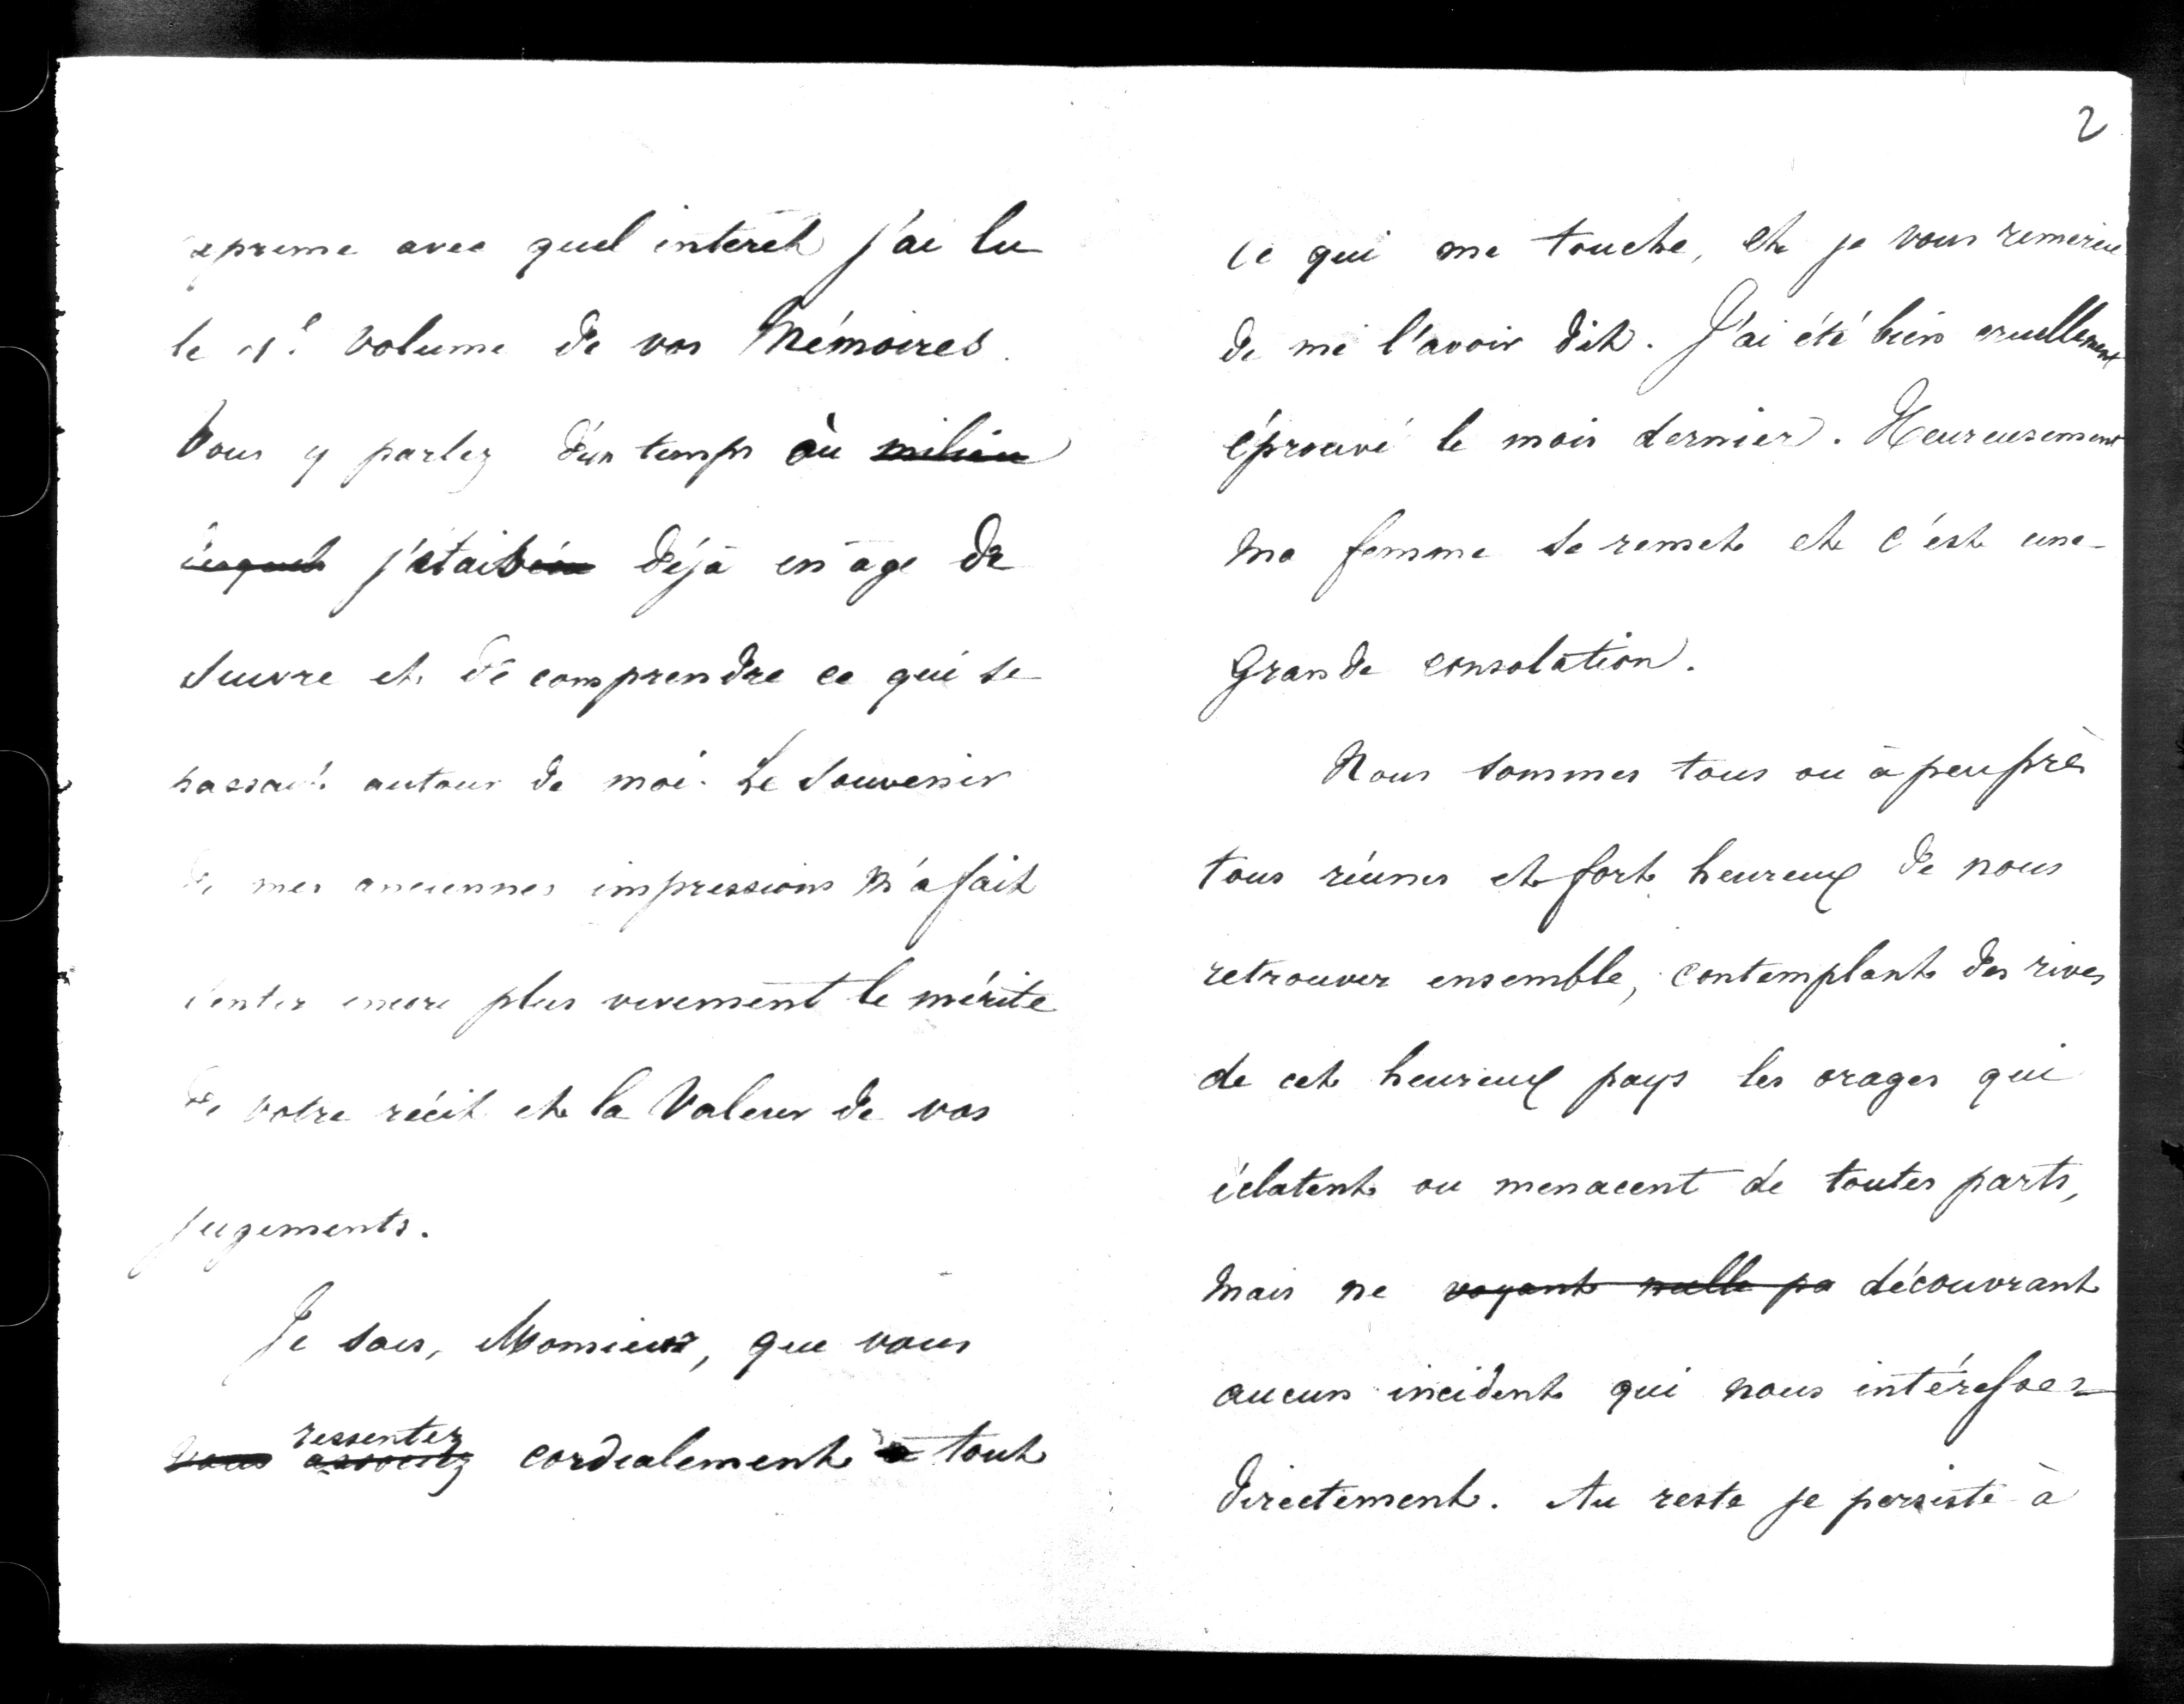 exprime avec quel intérêt j'ai lu
le 1e volume de vos Mémoires.
Vous y parlez d'un temps où ~~milieu~~
~~duquel~~ j'étais déjà en âge de
suivre et de comprendre ce qui se
passait autour de moi. Le souvenir
de mes anciennes impressions m'a fait
sentir encore plus vivement le mérite
de votre récit et la valeur de vos
jugements.
Je sais, Monsieur, que vous
ressentez
~~vous~~ ~~associez~~ cordialement ~~à~~ tout
2
ce qui me touche, et je vous remercie
de me l'avoir dit. J'ai été bien cruellement
éprouvé le mois dernier. Heureusement
ma femme se remet et c'est une
grande consolation.
Nous sommes tous ou à peu près
tous réunis et fort heureux de nous
retrouver ensemble, contemplant des rives
de cet heureux pays les orages qui
éclatent ou menacent de toutes parts,
mais ne ~~voyant nulle pa~~ découvrant
aucun incident qui nous intéresse
directement. Au reste je persiste à